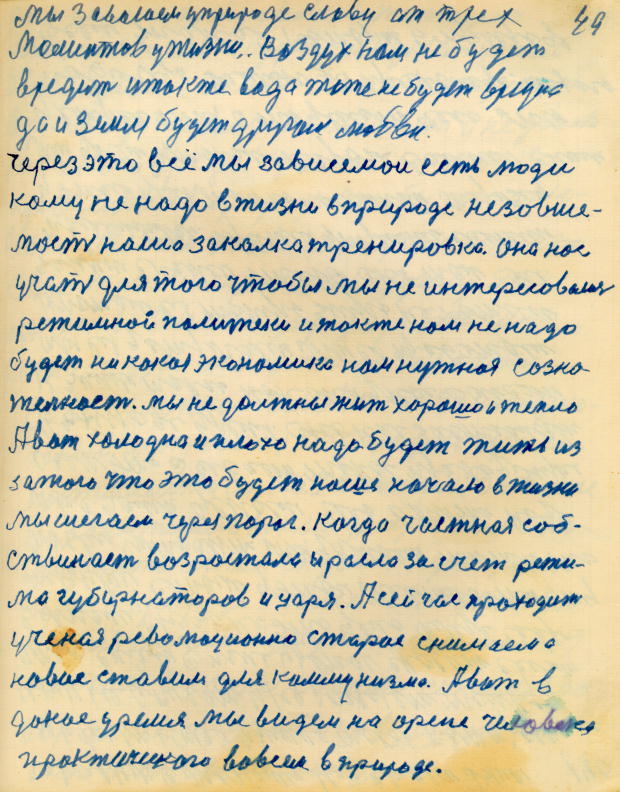 мы заваюем у природе славу от трех 49
моментов у жизни. Воздух нам не будет
вредит и также вода тоже не будет вредна
да и земля будет другом любви.
через это всё мы зависемои есть люди
кому не надо в жизни в природе незовше-
мость наша закалка тренировка. она нас
учать для того чтобы мы не интересовалися
режимной политеки и также нам не надо
будет никакая экономика нам нужная созна-
телность. мы не должны жит хорошо и тепло
А вот холодна и плохо надо будет жить из
за того что это будет наше начало в жизни
мы шегаем через порог. Когда частная соб-
ственаст возростала и расла за счет режи-
ма губернаторов и царя. А сейчас проходит
ученая революционно старое снимаем а
новое ставим для коммунизма. А вот в
даное уремя мы видем на арене человека
практического вовсем в природе.